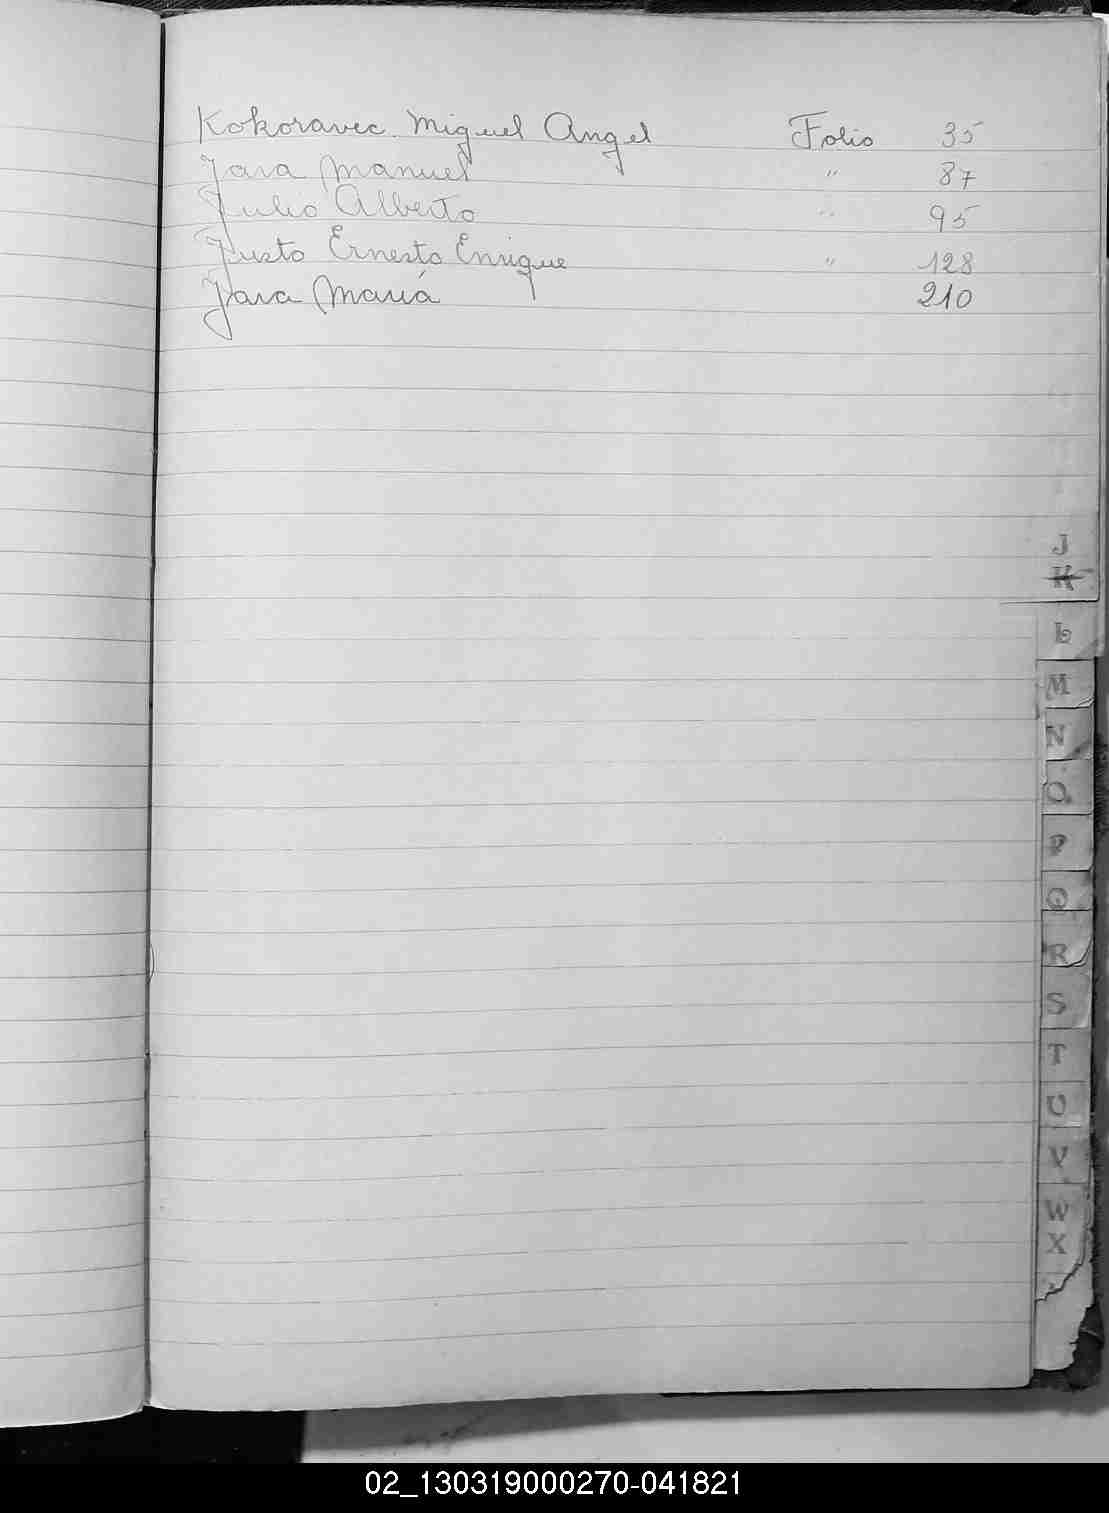 Kokoravec. Miguel Angel Folio 35
Jara Manuel " 87
Julio Alberto " 95
Justo Ernesto Enrique " 128
Jara María 210
J
K
L
M
N
O
P
Q
R
S
T
U
V
W
X
02_130319000270-041821